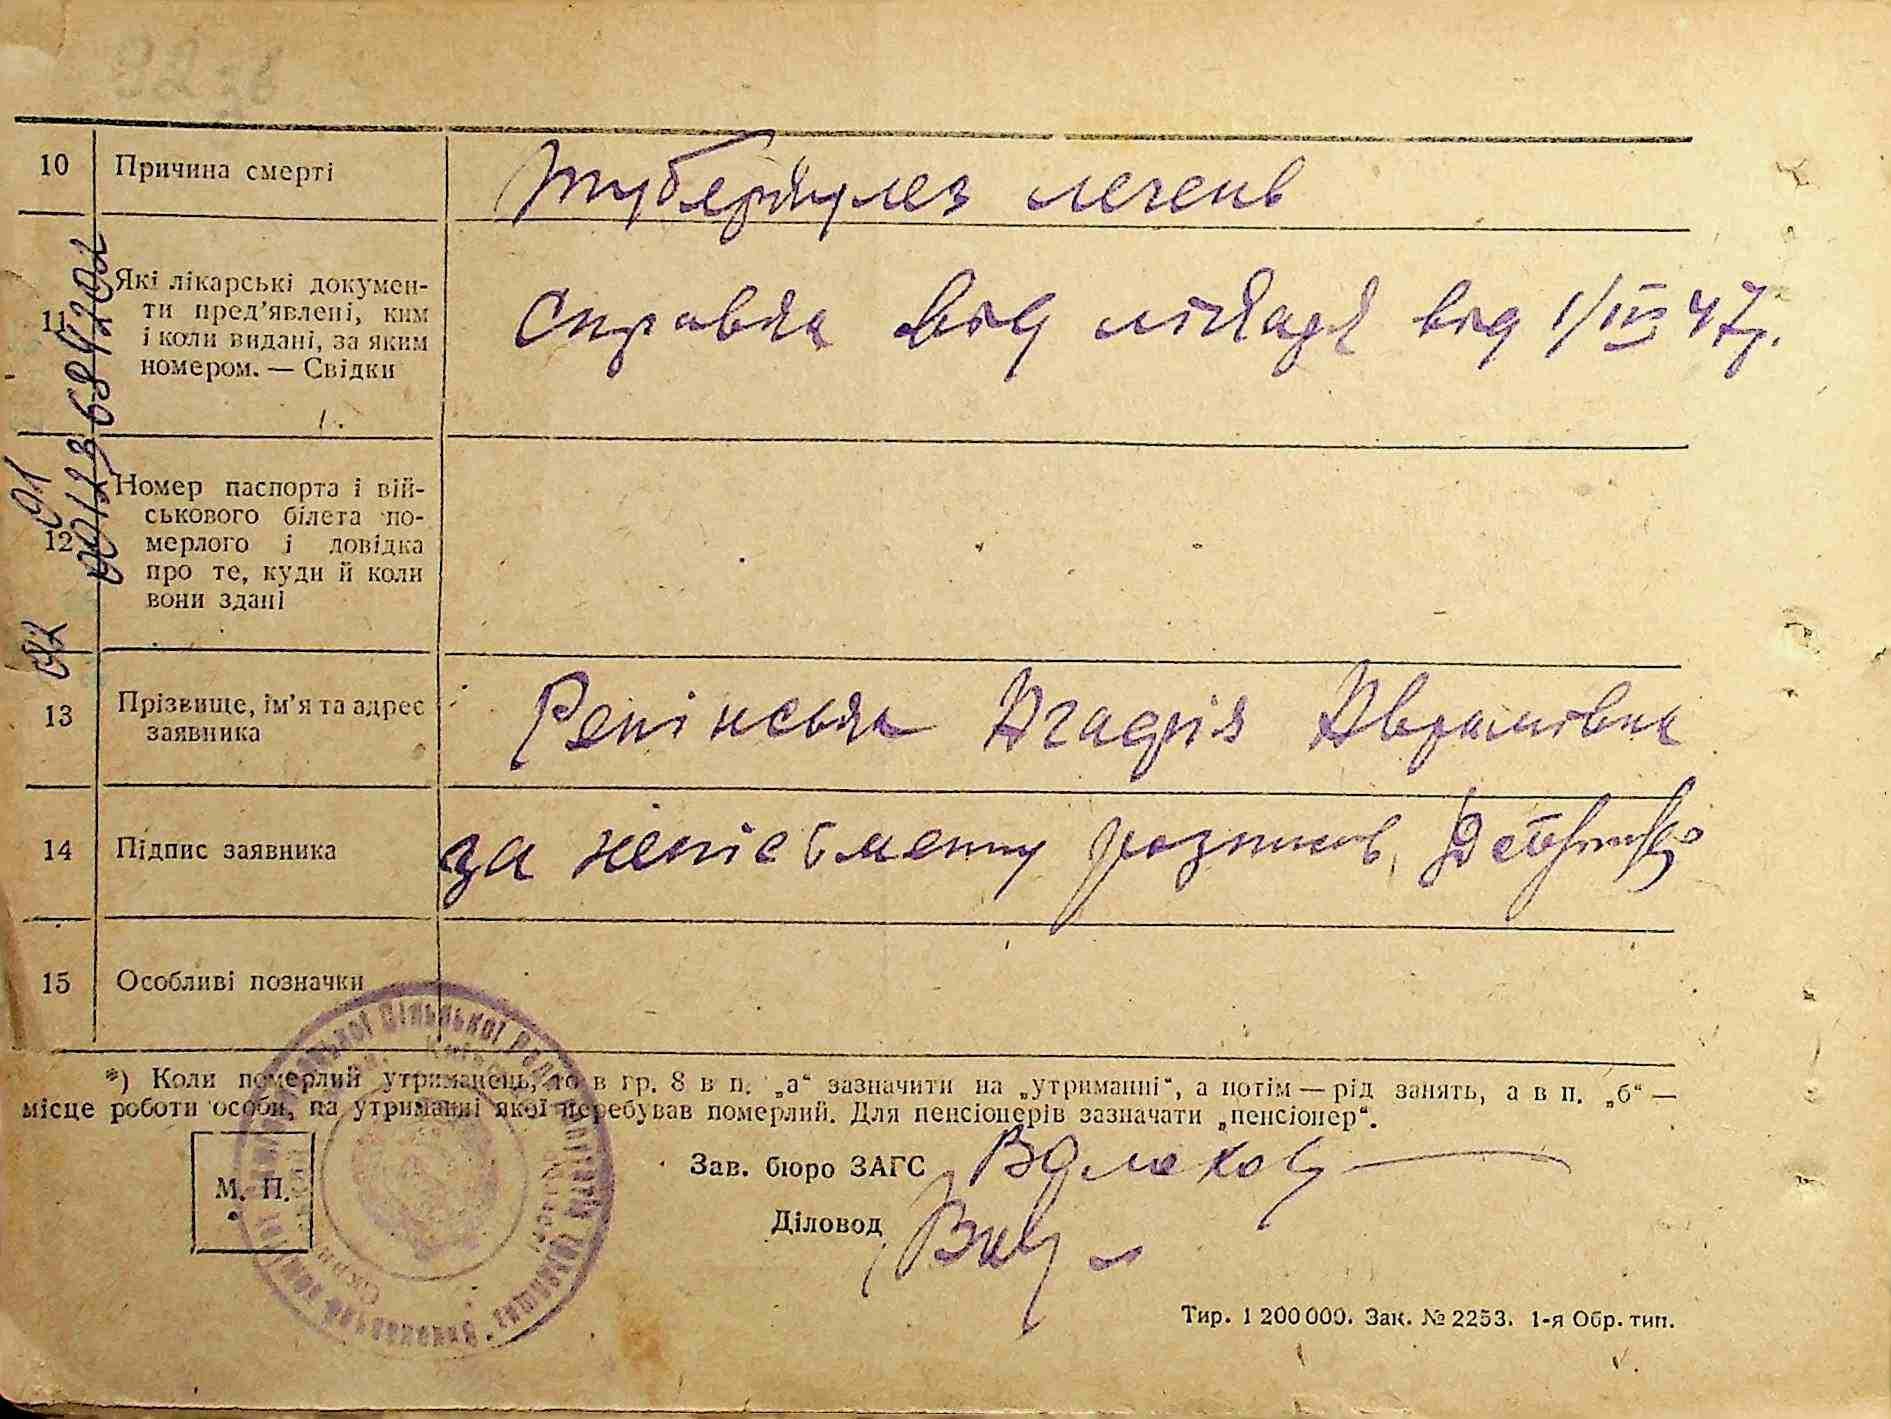 10 Причина смерті Туберкулез легень
11 Які лікарські докумен-
ти пред'явлені, ким
і коли видані, за яким
номером. — Свідки
Справка від лікаря від 1/III 47р.
12 Номер паспорта і вій-
ськового білета по-
мерлого і довідка
про те, куди й коли
вони здані
13 Прізвище, ім'я та адрес
заявника
Репінська Агафія Аврамівна
14 Підпис заявника за неписьменну розписов.
15 Особливі позначки
*) Коли померлий утриманець, то в гр. 8 в п. „а“ зазначити на „утриманні“, а потім — рід занять, а в п. „б“ —
місце роботи особи, на утриманні якої перебував померлий. Для пенсіонерів зазначати „пенсіонер“.
М. П.
Зав. бюро ЗАГС
Діловод
Тир. 1 200 000. Зак. № 2253. 1-я Обр. тип.